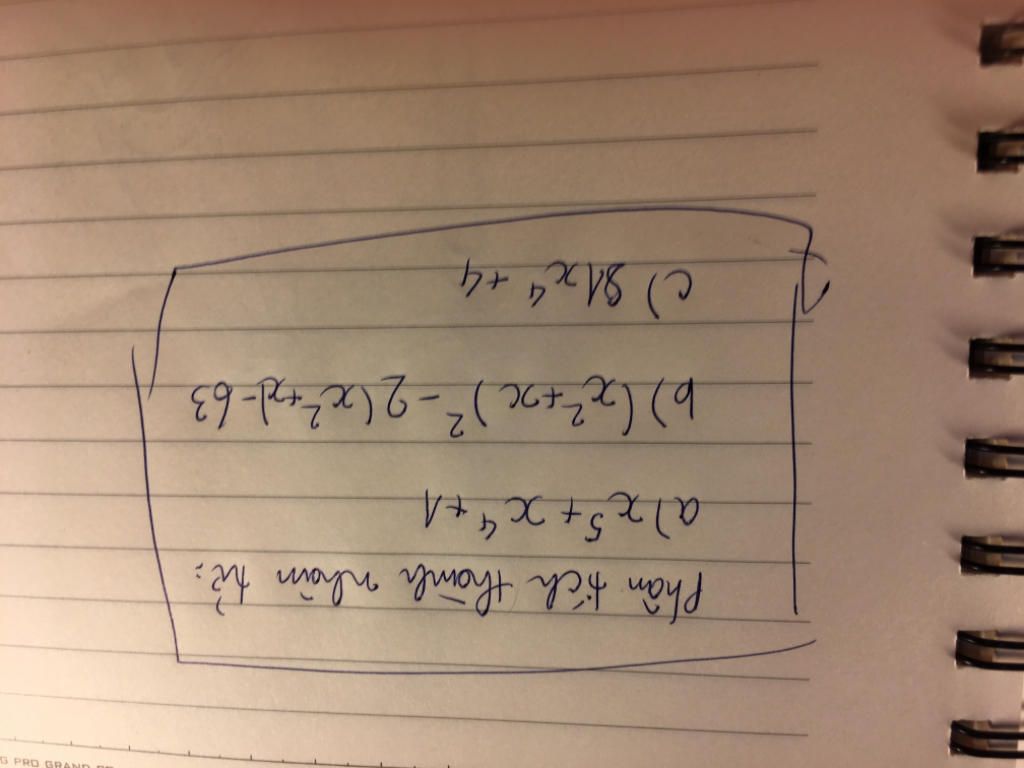 Phân tích thành nhân tử:
a) x⁵ + x⁴ + 1
b) (x² + x)² - 2(x² + x) - 63
c) 81x⁴ + 4
G PRO GRAND